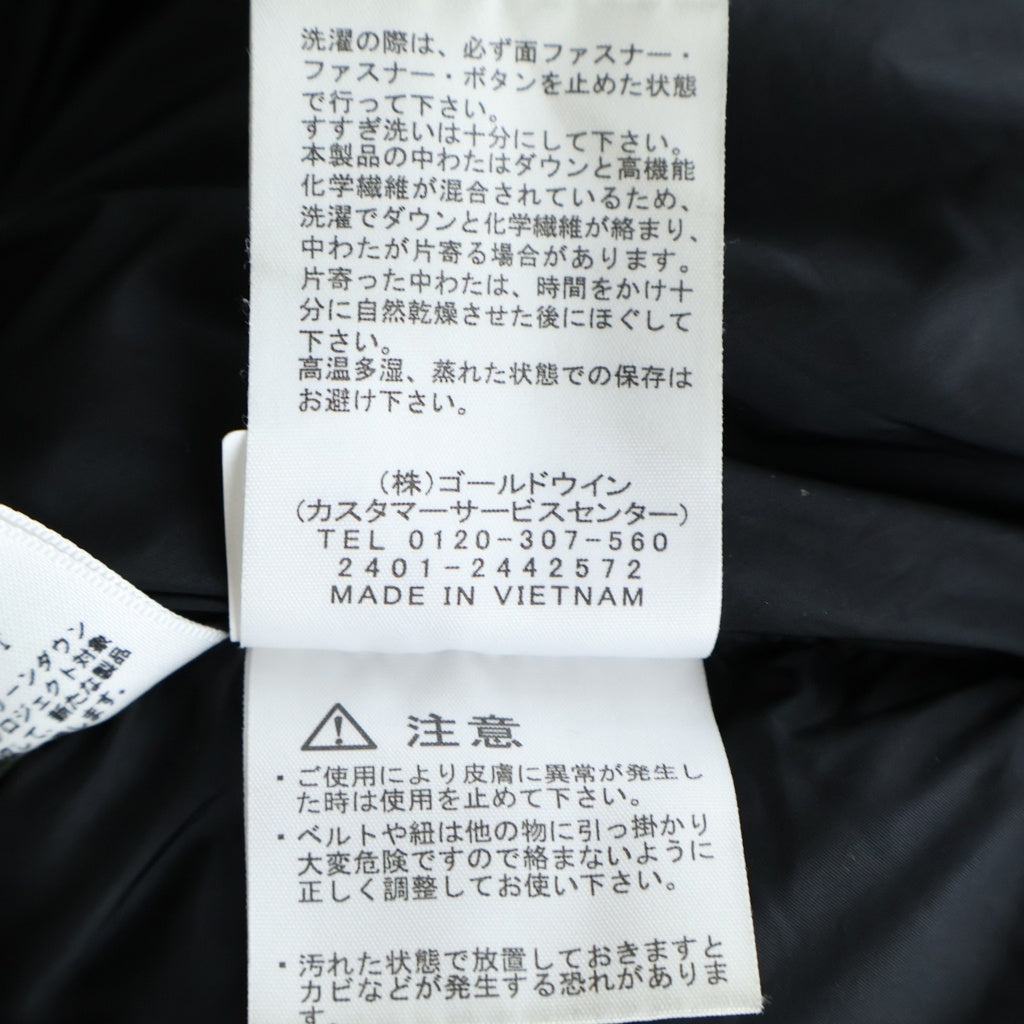 洗濯の際は、必ず面ファスナー・
ファスナー・ボタンを止めた状態
で行って下さい。
すすぎ洗いは十分にして下さい。
本製品の中わたはダウンと高機能
化学繊維が混合されているため、
洗濯でダウンと化学繊維が絡まり、
中わたが片寄る場合があります。
片寄った中わたは、時間をかけ十
分に自然乾燥させた後にほぐして
下さい。
高温多湿、蒸れた状態での保存は
お避け下さい。
(株)ゴールドウイン
(カスタマーサービスセンター)
TEL 0120-307-560
2401-2442572
MADE IN VIETNAM
リーンダウン
ロジェクト対象
新たな製品
ます。
注意
・ご使用により皮膚に異常が発生し
た時は使用を止めて下さい。
・ベルトや紐は他の物に引っ掛かり
大変危険ですので絡まないように
正しく調整してお使い下さい。
・汚れた状態で放置しておきますと
カビなどが発生する恐れがありま
す。